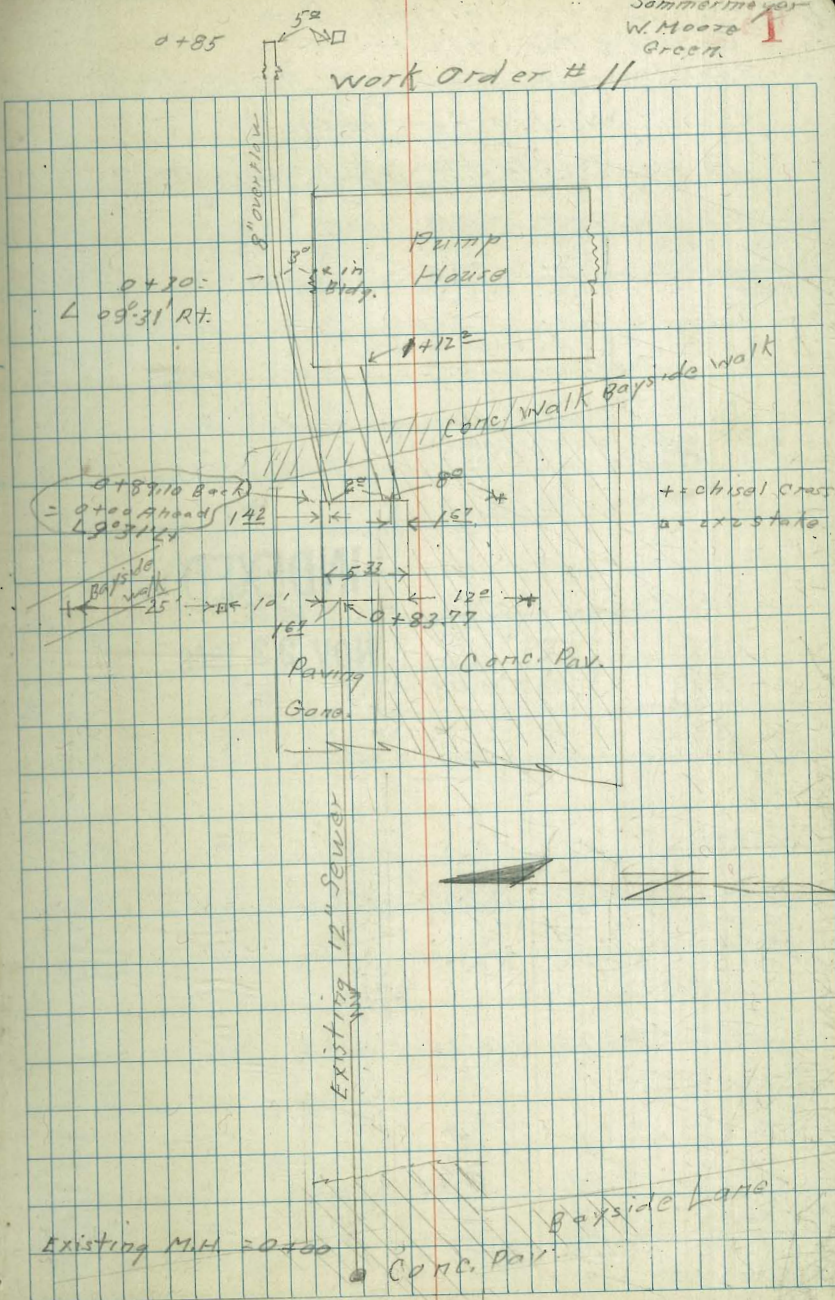 Sommermeyer
W. Moore
Green.
1
0+85
5º
Work Order # 11
8" overflow
Pump
House
3º
+ in
Bldg.
0+30=
L 09º-31' Rt.
1+12º
Conc. Walk Bayside Walk
0+89.10 Back
= 0+00 Ahead
L 9º31' Lt
2º
8º
1 42
1 67
+ = chisel cross
□ = 2x2 stake
5 33
Bayside
Walk
25'
10'
12º
1 67
0+83.77
Paving
Gone.
Conc. Pav.
Existing 12" Sewer
Bayside Lane
Existing M.H. = 0+00
Conc. Pav.